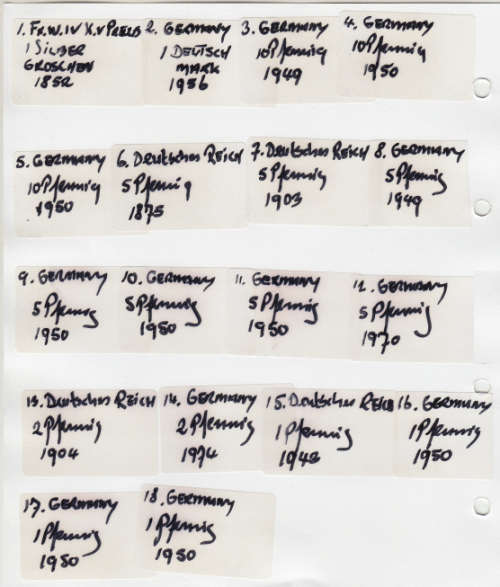 1. Fr.W.IV K.v PREUS
1 SILBER
GROSCHEN
1852
2. GERMANY
1 DEUTSCH
MARK
1956
3. GERMANY
10 Pfennig
1949
4. GERMANY
10 Pfennig
1950
5. GERMANY
10 Pfennig
1950
6. Deutsches REICH
5 Pfennig
1875
7. Deutsches REICH
5 Pfennig
1903
8. GERMANY
5 Pfennig
1949
9. GERMANY
5 Pfennig
1950
10. GERMANY
5 Pfennig
1950
11. GERMANY
5 Pfennig
1950
12. GERMANY
5 Pfennig
1970
13. Deutsches REICH
2 Pfennig
1904
14. GERMANY
2 Pfennig
1974
15. Deutsches REICH
1 Pfennig
1942
16. GERMANY
1 Pfennig
1950
17. GERMANY
1 Pfennig
1950
18. GERMANY
1 Pfennig
1950